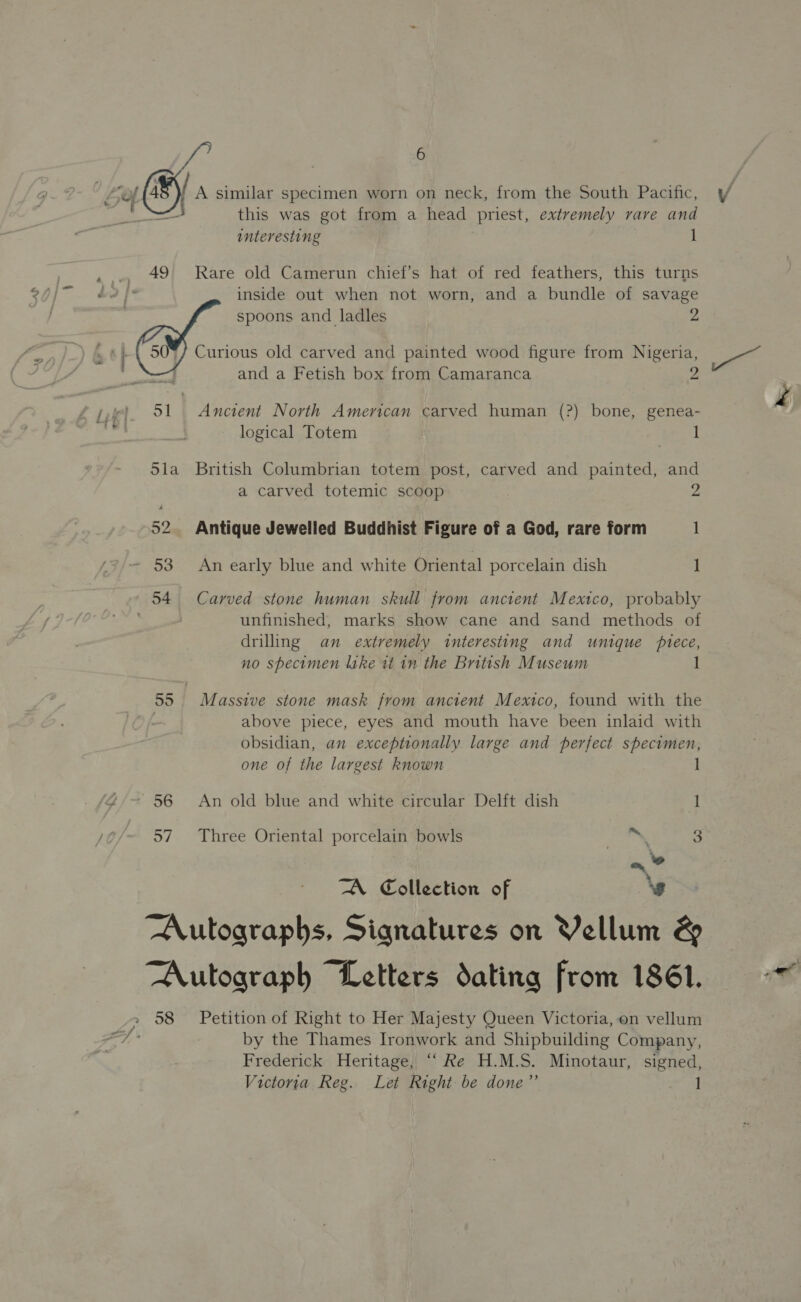 6
48 A similar specimen worn on neck, from the South Pacific,
this was got from a head priest, extremely rare and
interesting 1
49 Rare old Camerun chief's hat of red feathers, this turns
inside out when not worn, and a bundle of savage
spoons and ladles 2
50 Curious old carved and painted wood figure from Nigeria,
and a Fetish box from Camaranca 2
51 Ancient North American carved human (?) bone, genea-
logical Totem 1
51a British Columbrian totem post, carved and painted, and
a carved totemic scoop 2
52 Antique Jewelled Buddhist Figure of a God, rare form 1
53 An early blue and white Oriental porcelain dish 1
54 Carved stone human skull from ancient Mexico, probably
unfinished, marks show cane and sand methods of
drilling an extremely interesting and unique piece,
no specimen like it in the British Museum 1
55 Massive stone mask from ancient Mexico, found with the
above piece, eyes and mouth have been inlaid with
obsidian, an exceptionally large and perfect specimen,
one of the largest known 1
56 An old blue and white circular Delft dish 1
57 Three Oriental porcelain bowls 3
A Collection of
Autographs, Signatures on Vellum &
Autograph Letters dating from 1861.
58 Petition of Right to Her Majesty Queen Victoria, on vellum
by the Thames Ironwork and Shipbuilding Company,
Frederick Heritage, “ Re H.M.S. Minotaur, signed,
Victoria Reg. Let Right be done ” 1